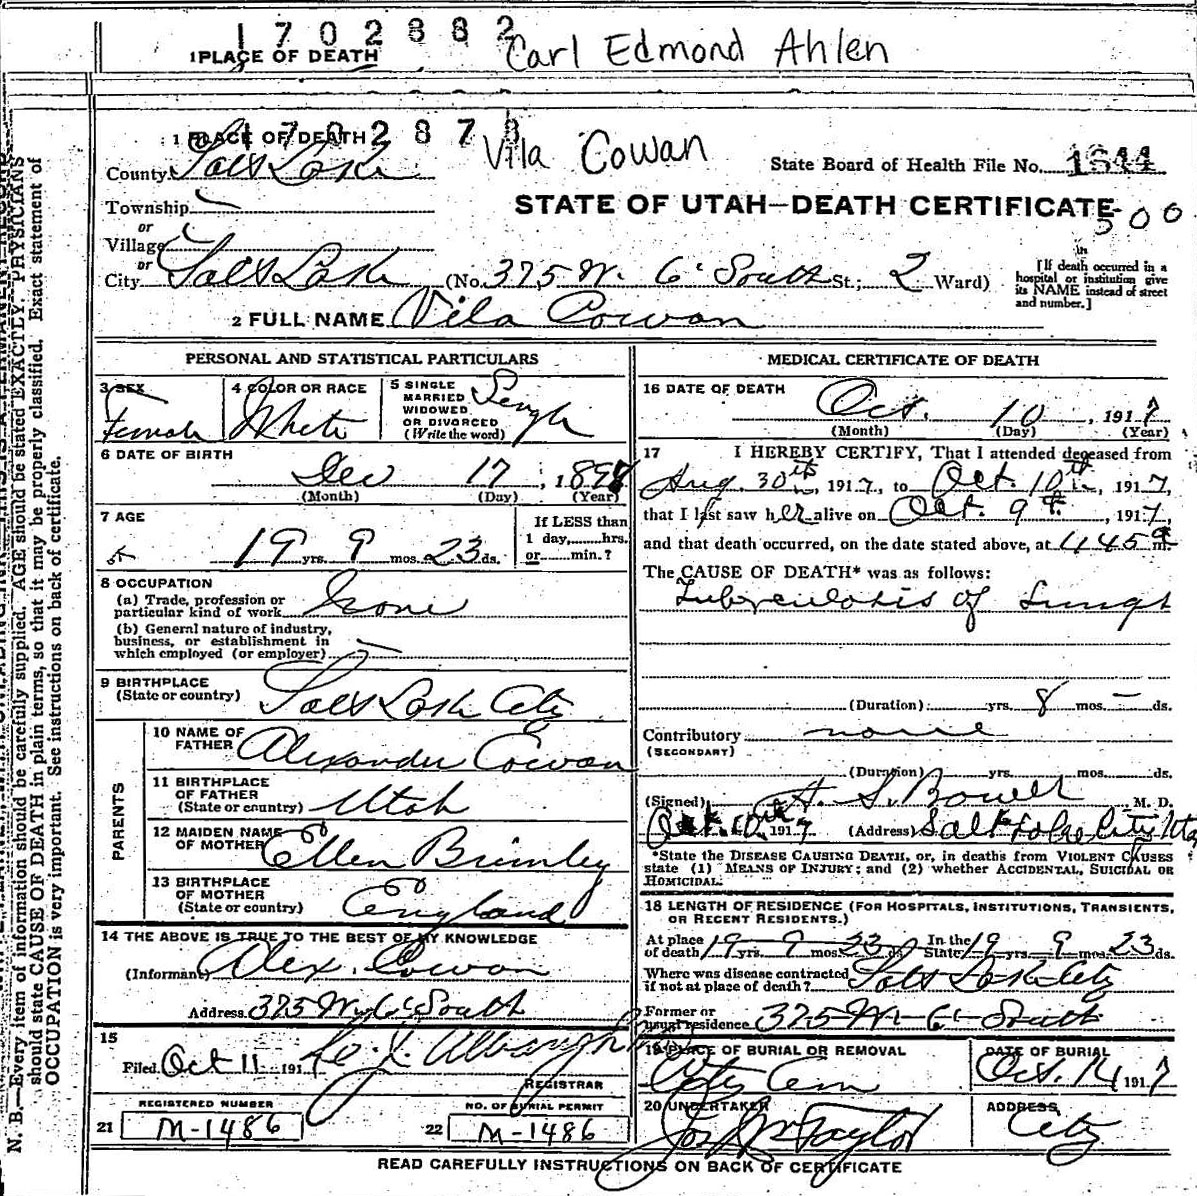 1702882
1 PLACE OF DEATH Carl Edmond Ahlen
1702878
1 PLACE OF DEATH Vila Cowan
County Salt Lake State Board of Health File No. 1644
Township
or
Village
STATE OF UTAH—DEATH CERTIFICATE
500
or
City Salt Lake (No. 375 W. 6' South St.; 2 Ward)
[If death occurred in a
hospital or institution give
its NAME instead of street
and number.]
in
2 FULL NAME Vila Cowan
PERSONAL AND STATISTICAL PARTICULARS
3 SEX
Female
4 COLOR OR RACE
White
5 SINGLE
MARRIED
WIDOWED
OR DIVORCED
(Write the word)
Single
6 DATE OF BIRTH
Dec 17, 1897
(Month) (Day) (Year)
7 AGE
19 yrs. 9 mos. 23 ds.
If LESS than
1 day,......hrs.
or......min.?
8 OCCUPATION
(a) Trade, profession or
particular kind of work None
(b) General nature of industry,
business, or establishment in
which employed (or employer)
9 BIRTHPLACE
(State or country) Salt Lake City
PARENTS
10 NAME OF
FATHER Alexander Cowan
11 BIRTHPLACE
OF FATHER
(State or country) Utah
12 MAIDEN NAME
OF MOTHER Ellen Brimley
13 BIRTHPLACE
OF MOTHER
(State or country) England
14 THE ABOVE IS TRUE TO THE BEST OF MY KNOWLEDGE
(Informant) Alex. Cowan
Address 375 W 6' South
15
Filed Oct 11 191
REGISTRAR
REGISTERED NUMBER
21 M-1486
NO. OF BURIAL PERMIT
22 M-1486
MEDICAL CERTIFICATE OF DEATH
16 DATE OF DEATH
Oct. 10, 1917
(Month) (Day) (Year)
17 I HEREBY CERTIFY, That I attended deceased from
Aug. 30th, 1917, to Oct. 10th, 1917,
that I last saw her alive on Oct. 9th, 1917,
and that death occurred, on the date stated above, at 1145 a m.
The CAUSE OF DEATH* was as follows:
Tuberculosis of Lungs
(Duration) yrs. 8 mos. — ds.
Contributory none
(SECONDARY)
(Duration) yrs. mos. ds.
(Signed) H. S. Bower M. D.
Oct. 10th 1917 (Address) Salt Lake City Utah
*State the DISEASE CAUSING DEATH, or, in deaths from VIOLENT CAUSES
state (1) MEANS OF INJURY; and (2) whether ACCIDENTAL, SUICIDAL OR
HOMICIDAL.
18 LENGTH OF RESIDENCE (FOR HOSPITALS, INSTITUTIONS, TRANSIENTS,
OR RECENT RESIDENTS.)
At place
of death 19 yrs. 9 mos. 23 ds. In the
State 19 yrs. 9 mos. 23 ds.
Where was disease contracted
if not at place of death? Salt Lake City
Former or
usual residence 375 W 6' South
19 PLACE OF BURIAL OR REMOVAL
City Cem
DATE OF BURIAL
Oct. 14 1917
20 UNDERTAKER
Taylor
ADDRESS
City
READ CAREFULLY INSTRUCTIONS ON BACK OF CERTIFICATE
N. B.—Every item of information should be carefully supplied. AGE should be stated EXACTLY. PHYSICIANS
should state CAUSE OF DEATH in plain terms, so that it may be properly classified. Exact statement of
OCCUPATION is very important. See instructions on back of certificate.